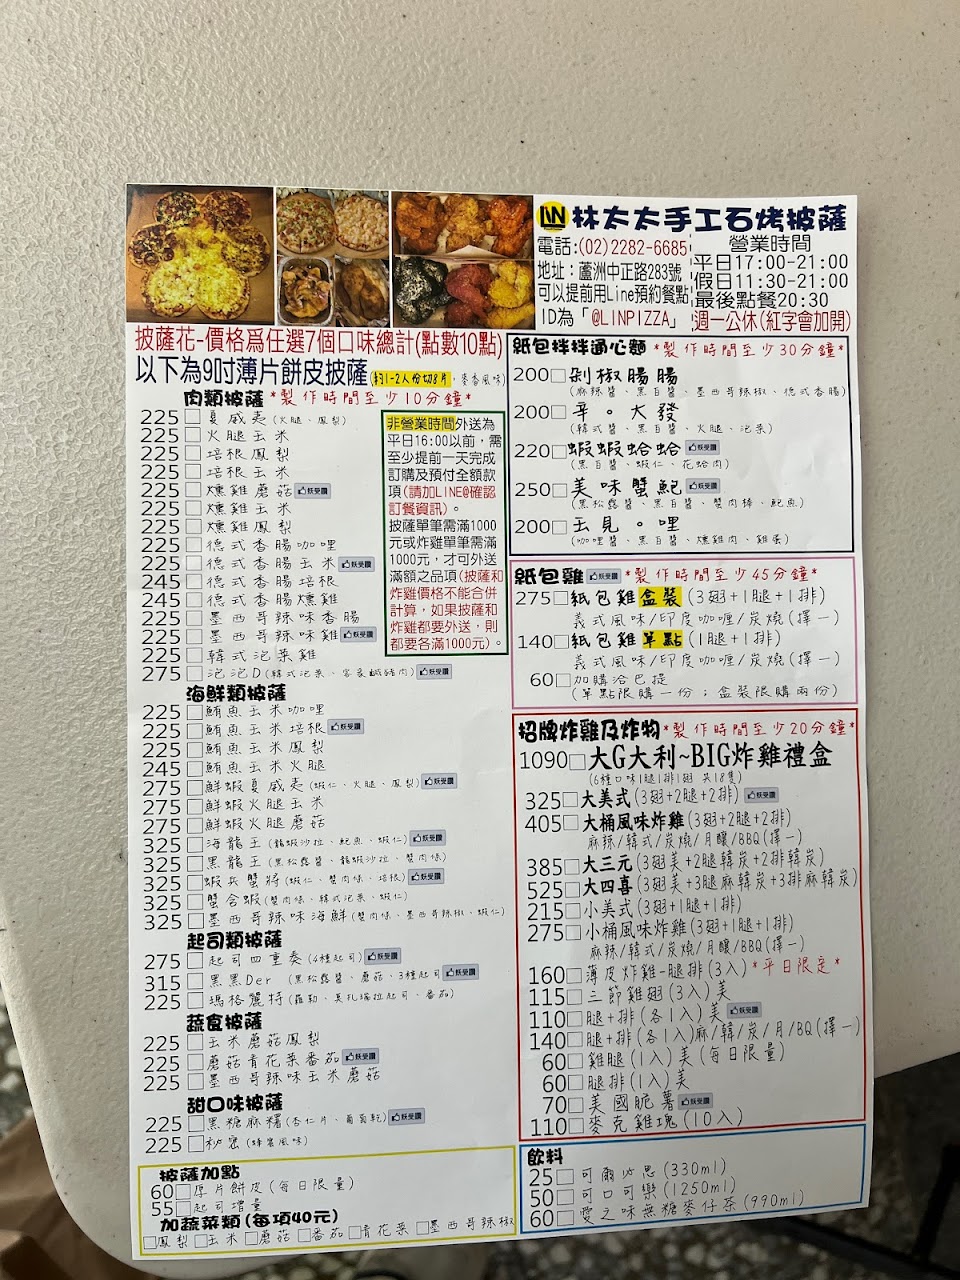 LIN 林太太手工石烤披薩
電話:(02)2282-6685
地址：蘆洲中正路283號
可以提前用Line預約餐點
ID為「@LINPIZZA」
營業時間
平日17:00-21:00
假日11:30-21:00
最後點餐20:30
週一公休(紅字會加開)
披薩花-價格為任選7個口味總計(點數10點)
以下為9吋薄片餅皮披薩(約1-2人份切8片，麥香風味)
肉類披薩*製作時間至少10分鐘*
225□夏威夷(火腿、鳳梨)
225□火腿玉米
225□培根鳳梨
225□培根玉米
225□燻雞蘑菇 秋受讚
225□燻雞玉米
225□燻雞鳳梨
225□德式香腸咖哩
225□德式香腸玉米
245□德式香腸培根
245□德式香腸燻雞
225□墨西哥辣味香腸
225□墨西哥辣味雞
225□韓式泡菜雞
275□泡泡D(韓式泡菜、客家鹹豬肉)
非營業時間外送為
平日16:00以前，需
至少提前一天完成
訂購及預付全額款
項(請加LINE@確認
訂餐資訊)。
披薩單筆需滿1000
元或炸雞單筆需滿
1000元，才可外送
滿額之品項(披薩和
炸雞價格不能合併
計算，如果披薩和
炸雞都要外送，則
都要各滿1000元)。
海鮮類披薩
225□鮪魚玉米咖哩
225□鮪魚玉米培根
225□鮪魚玉米鳳梨
245□鮪魚玉米火腿
275□鮮蝦夏威夷(蝦仁、火腿、鳳梨)
275□鮮蝦火腿玉米
275□鮮蝦火腿蘑菇
325□海龍王(龍蝦沙拉、鮑魚、蝦仁)
325□黑龍王(黑松露醬、龍蝦沙拉、蟹肉條)
325□蝦兵蟹將(蝦仁、蟹肉條、培根)
325□蟹合蝦(蟹肉條、韓式泡菜、蝦仁)
325□墨西哥辣味海鮮(蟹肉條、墨西哥辣椒、蝦仁)
起司類披薩
275□起司四重奏(4種起司)
315□黑黑Der(黑松露醬、蘑菇、3種起司)
225□瑪格麗特(羅勒、莫扎瑞拉起司、番茄)
蔬食披薩
225□玉米蘑菇鳳梨
225□蘑菇青花菜番茄
225□墨西哥辣味玉米蘑菇
甜口味披薩
225□黑糖麻糬(杏仁片、葡萄乾)
225□秘密(蜂蜜風味)
披薩加點
60□厚片餅皮(每日限量)
55□起司增量
加蔬菜類(每項40元)
□鳳梨□玉米□蘑菇□番茄□青花菜□墨西哥辣椒
紙包拌拌通心麵*製作時間至少30分鐘*
200□剁椒腸腸
(麻辣醬、黑百醬、墨西哥辣椒、德式香腸)
200□辛。大發
(韓式醬、黑百醬、火腿、泡菜)
220□蝦蝦蛤蛤
(黑百醬、蝦仁、花蛤肉)
250□美味蟹鮑
(黑松露醬、黑百醬、蟹肉棒、鮑魚)
200□玉見。哩
(咖哩醬、黑百醬、燻雞肉、雞蛋)
紙包雞*製作時間至少45分鐘*
275□紙包雞盒裝(3翅+1腿+1排)
義式風味/印度咖喱/炭燒(擇一)
140□紙包雞單點(1腿+1排)
義式風味/印度咖喱/炭燒(擇一)
60□加購洽巴提
(單點限購一份；盒裝限購兩份)
招牌炸雞及炸物*製作時間至少20分鐘*
1090□大G大利~BIG炸雞禮盒
(6種口味1腿1排1翅 共18隻)
325□大美式(3翅+2腿+2排)
405□大桶風味炸雞(3翅+2腿+2排)
麻辣/韓式/炭燒/月釀/BBQ(擇一)
385□大三元(3翅美+2腿韓炭+2排韓炭)
525□大四喜(3翅美+3腿麻韓炭+3排麻韓炭)
215□小美式(3翅+1腿+1排)
275□小桶風味炸雞(3翅+1腿+1排)
麻辣/韓式/炭燒/月釀/BBQ(擇一)
160□薄皮炸雞-腿排(3入)*平日限定*
115□三節雞翅(3入)美
110□腿+排(各1入)美
140□腿+排(各1入)麻/韓/炭/月/BQ(擇一)
60□雞腿(1入)美(每日限量)
60□腿排(1入)美
70□美國脆薯
110□麥克雞塊(10入)
飲料
25□可爾必思(330ml)
50□可口可樂(1250ml)
60□愛之味無糖麥仔茶(990ml)